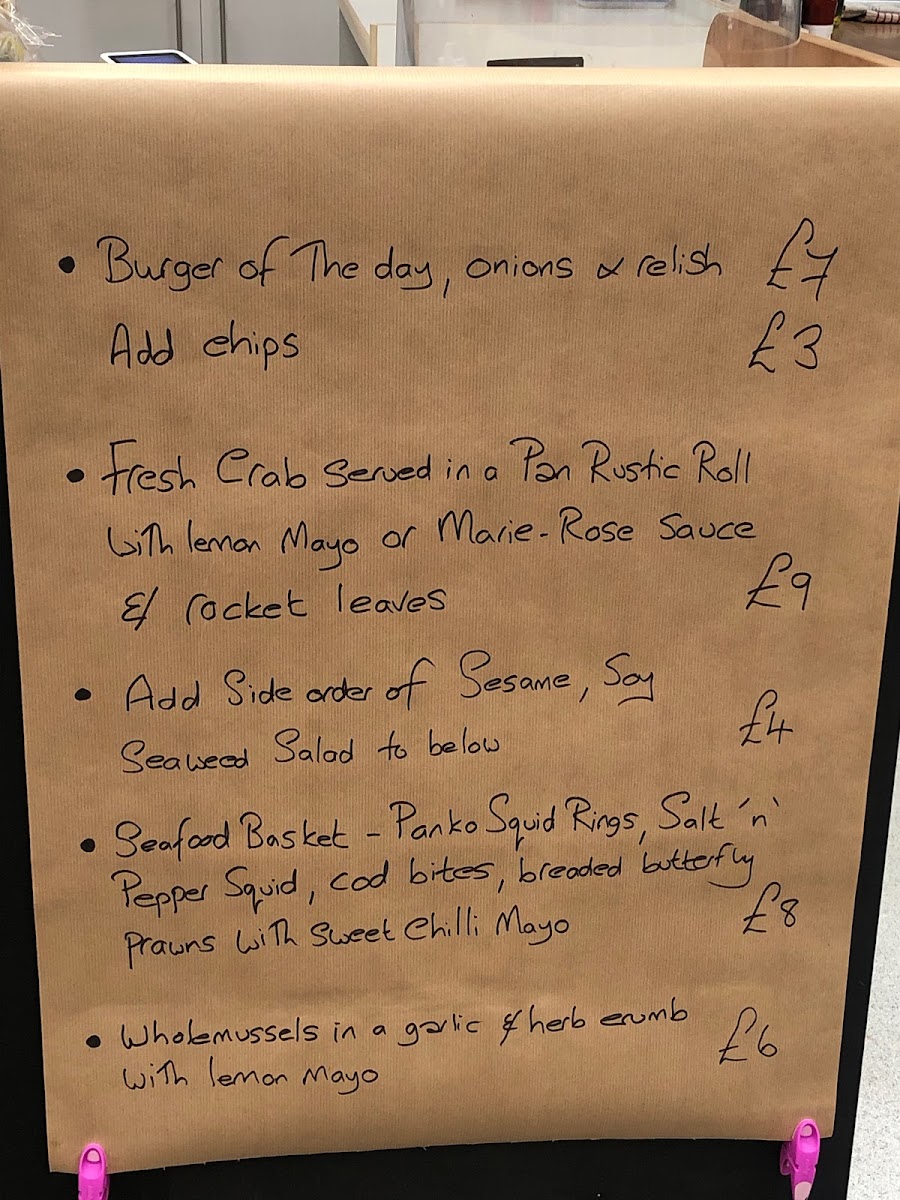 • Burger of The day, onions & relish £7
Add chips £3
• Fresh Crab Served in a Pan Rustic Roll
with lemon Mayo or Marie-Rose Sauce
& rocket leaves £9
• Add Side order of Sesame, Soy
Seaweed Salad to below £4
• Seafood Basket - Panko Squid Rings, Salt 'n'
Pepper Squid, cod bites, breaded butterfly
prawns with Sweet Chilli Mayo £8
• Wholemussels in a garlic & herb crumb £6
with lemon Mayo